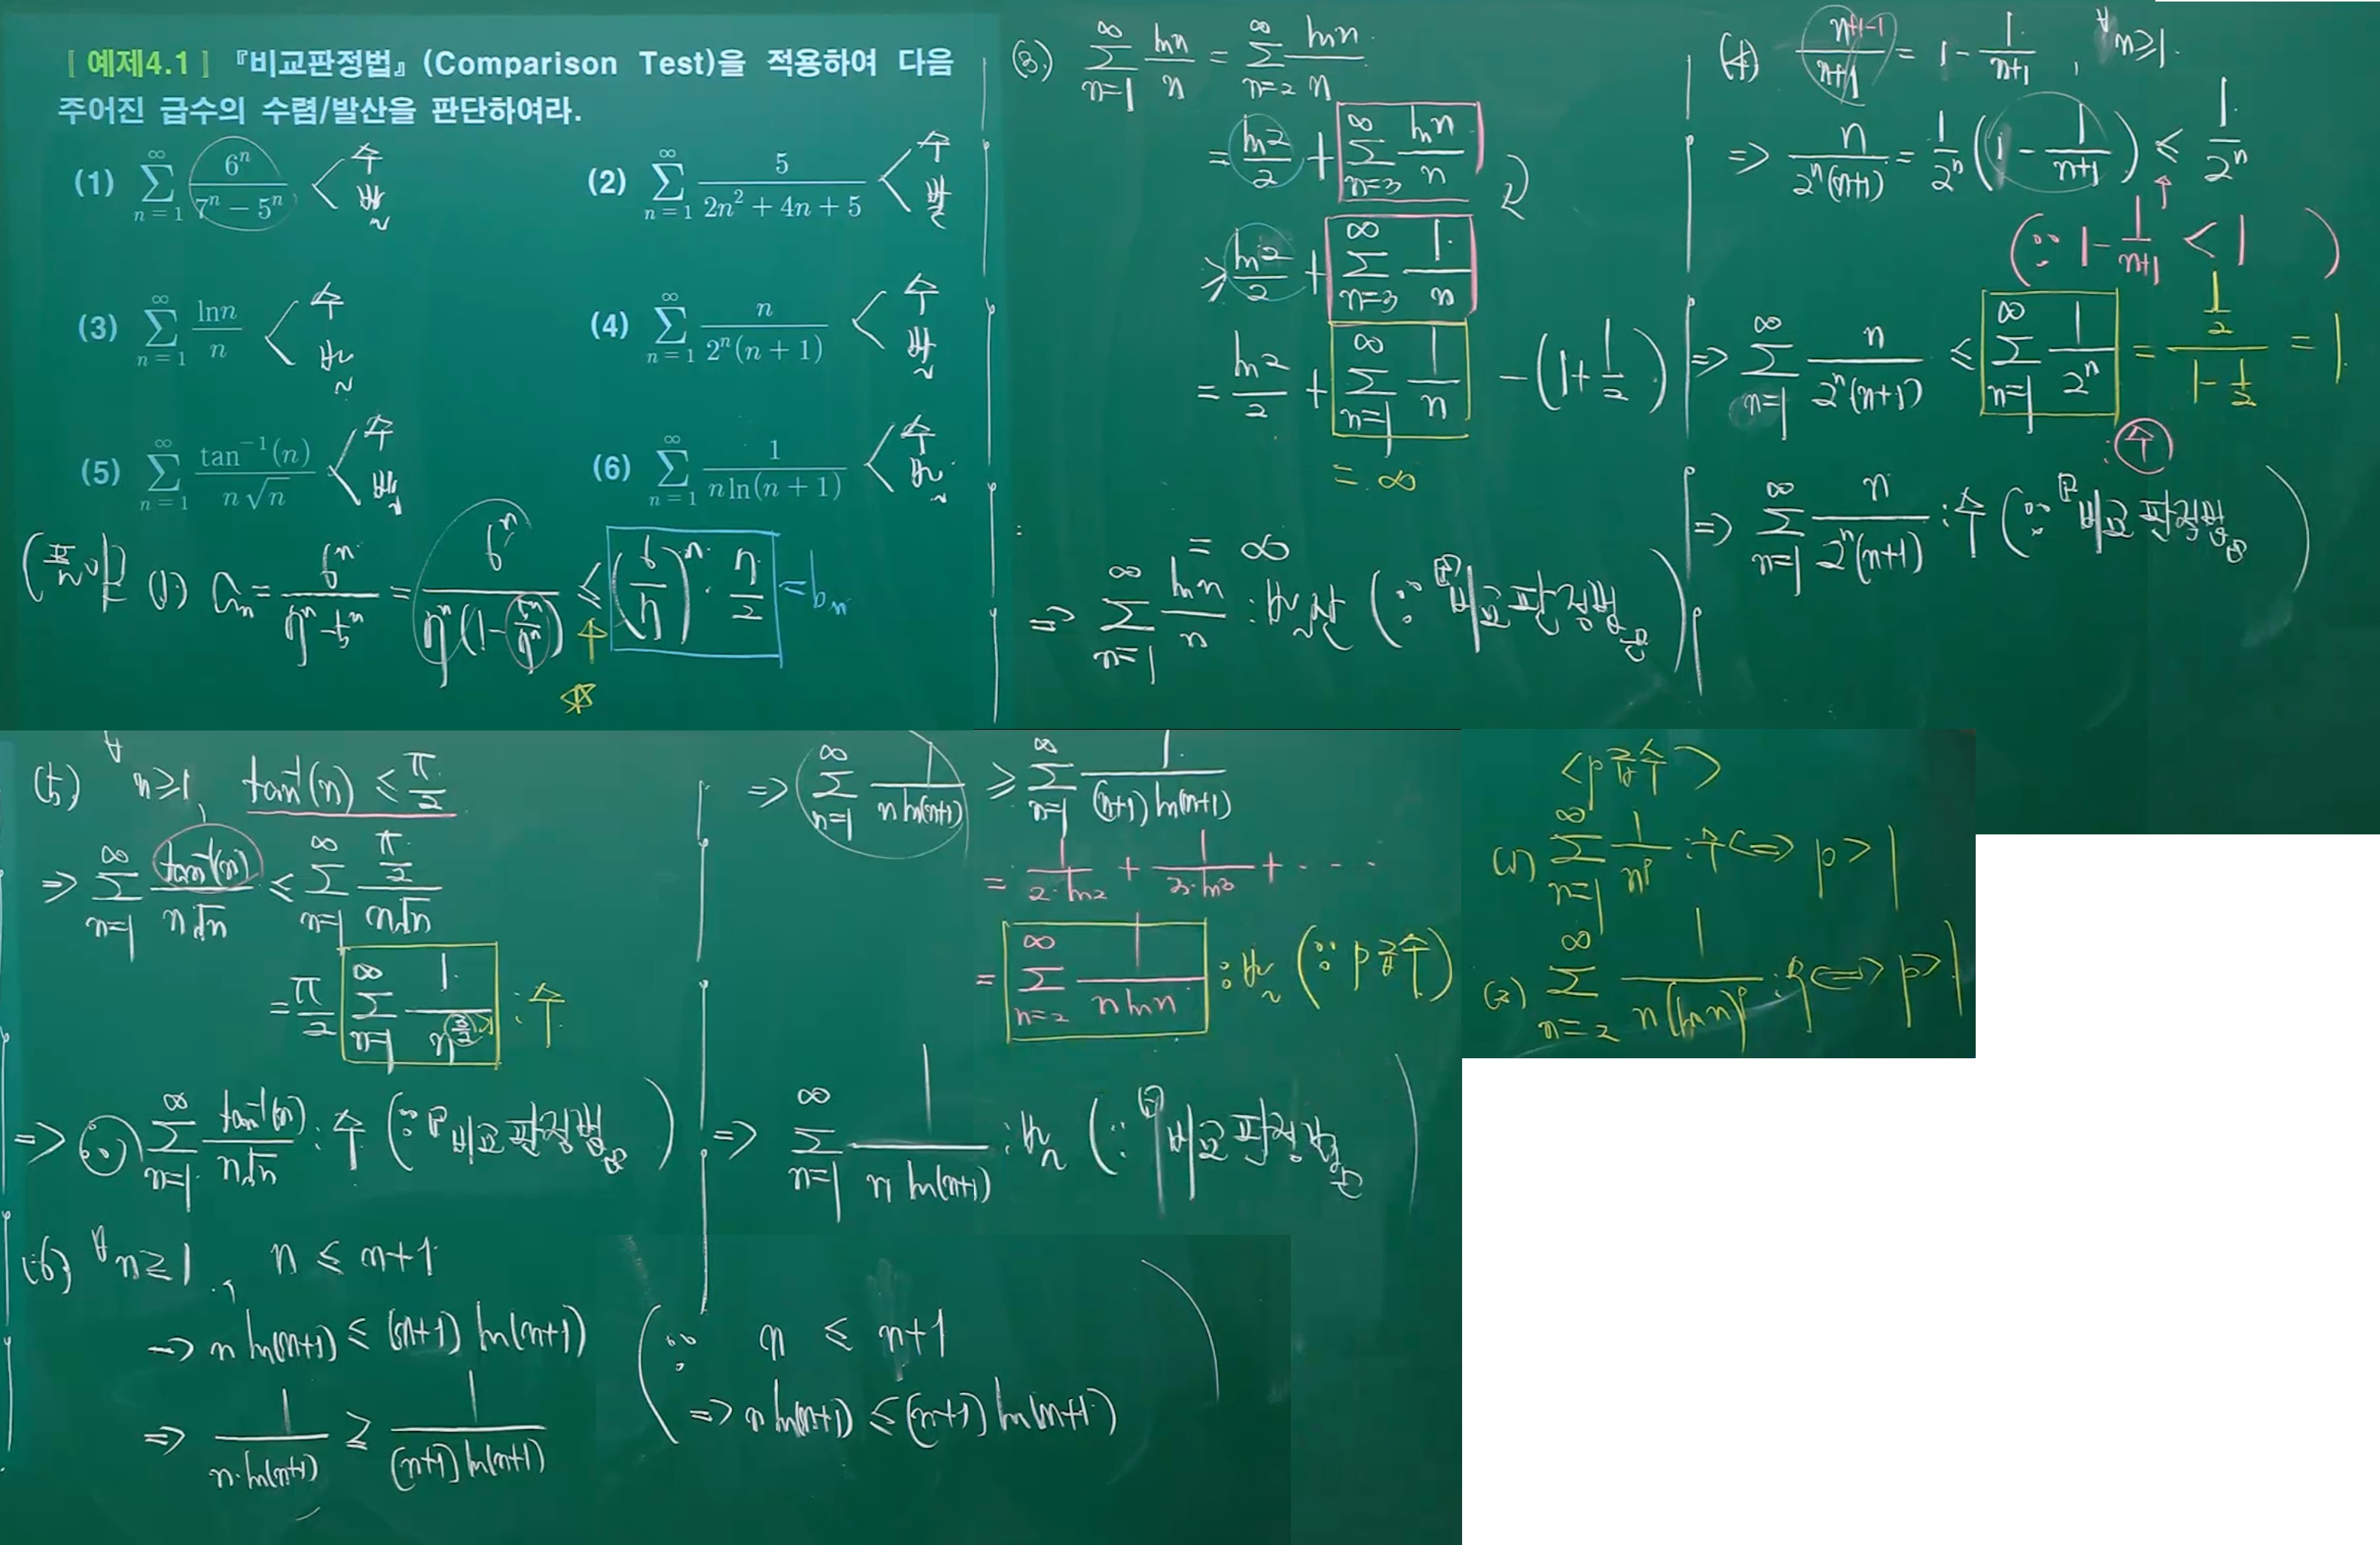 [ 예제4.1 ] 『비교판정법』(Comparison Test)을 적용하여 다음
주어진 급수의 수렴/발산을 판단하여라.
(1) ∑_{n=1}^{∞} 6^n/(7^n − 5^n) < 수 발
(2) ∑_{n=1}^{∞} 5/(2n^2 + 4n + 5) < 수 발
(3) ∑_{n=1}^{∞} lnn/n < 수 발
(4) ∑_{n=1}^{∞} n/(2^n(n+1)) < 수 발
(5) ∑_{n=1}^{∞} tan^{-1}(n)/(n√n) < 수 발
(6) ∑_{n=1}^{∞} 1/(n ln(n+1)) < 수 발
(풀이) (1) a_n = 6^n/(7^n − 5^n) = 6^n/(7^n(1 − 5^n/7^n)) ≤ (6/7)^n · 7/2 = b_n
(3) ∑_{n=1}^{∞} ln n/n = ∑_{n=2}^{∞} ln n/n
= ln2/2 + ∑_{n=3}^{∞} ln n/n
≥ ln2/2 + ∑_{n=3}^{∞} 1/n
= ln2/2 + ∑_{n=1}^{∞} 1/n − (1 + 1/2)
= ∞
= ∞
=> ∑_{n=1}^{∞} ln n/n : 발산 (∵ 『비교판정법』)
(4) (n+1−1)/(n+1) = 1 − 1/(n+1), ∀n≥1
=> n/(2^n(n+1)) = 1/2^n (1 − 1/(n+1)) ≤ 1/2^n
(∵ 1 − 1/(n+1) < 1)
=> ∑_{n=1}^{∞} n/(2^n(n+1)) ≤ ∑_{n=1}^{∞} 1/2^n = (1/2)/(1 − 1/2) = 1
: 수
=> ∑_{n=1}^{∞} n/(2^n(n+1)) : 수 (∵ 『비교판정법』)
(5) ∀n≥1, tan^{-1}(n) ≤ π/2
=> ∑_{n=1}^{∞} tan^{-1}(n)/(n√n) ≤ ∑_{n=1}^{∞} (π/2)/(n√n)
= π/2 ∑_{n=1}^{∞} 1/n^{3/2} : 수
=> ∴ ∑_{n=1}^{∞} tan^{-1}(n)/(n√n) : 수 (∵ 『비교판정법』)
(6) ∀n≥1, n ≤ n+1
=> n ln(n+1) ≤ (n+1) ln(n+1)
=> 1/(n·ln(n+1)) ≥ 1/((n+1) ln(n+1))
(∵ n ≤ n+1
=> n ln(n+1) ≤ (n+1) ln(n+1))
=> ∑_{n=1}^{∞} 1/(n ln(n+1)) ≥ ∑_{n=1}^{∞} 1/((n+1) ln(n+1))
= 1/(2·ln2) + 1/(3·ln3) + ···
= ∑_{n=2}^{∞} 1/(n ln n) : 발 (∵ p급수)
=> ∑_{n=1}^{∞} 1/(n ln(n+1)) : 발 (∵ 『비교판정법』)
<p급수>
(1) ∑_{n=1}^{∞} 1/n^p : 수 <=> p > 1
(2) ∑_{n=2}^{∞} 1/(n(ln n)^p) : 수 <=> p > 1